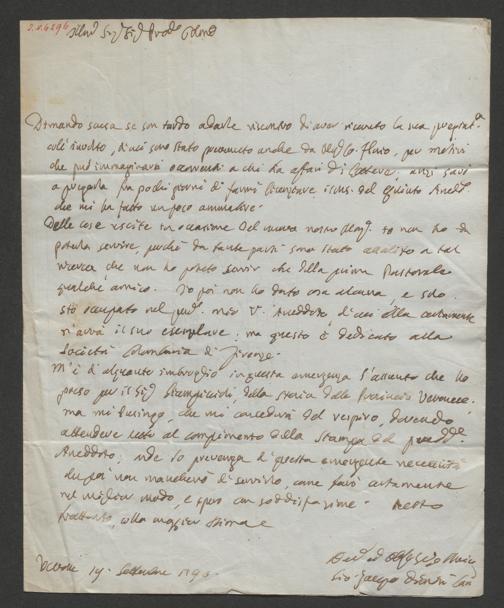 Sig.
Dimando scusa se son tardo a darle riscontro di aver ricevuto la sua pregiat.a
coll' involto, di cui sono stato prevenuto anche da per motivi
che può immaginarsi occorrenti a chi ha affari di anzi sarà
a pregarla fra pochi giorni di farmi del quinto Aned.
che mi ha fatto un poco ammattire.
Delle cose uscite in occasione del nuovo nostro io non ho da
poterla servire, perché da tante parti sono stato assalito a tal
ricerca che non ho potuto servir che della prima Pastorale
qualche amico. Io poi non ho dato cosa alcuna, e solo
sto occupato nel mio V. Aneddoto, di cui ella certamente
n'avrà il suo esemplare. ma questo è dedicato alla
Società Colombaria di Firenze.
M'è d'alquanto imbroglio in questa emergenza l'assunto che ho
preso per il Sig. della storia delle Provincie Veronese.
ma mi lusingo, che mi concederà del respiro, dovendo
attendere tutto al compimento della stampa del pred.
Aneddoto, onde lo prevenga di questa emergente necessità
da poi non mancherò di servirlo, come farò certamente
nel miglior modo, e spero con soddisfazione. Resto
frattanto, colla maggior stima e
Verona 19. Settembre 179
Gio. Jacopo Dionisi Can.